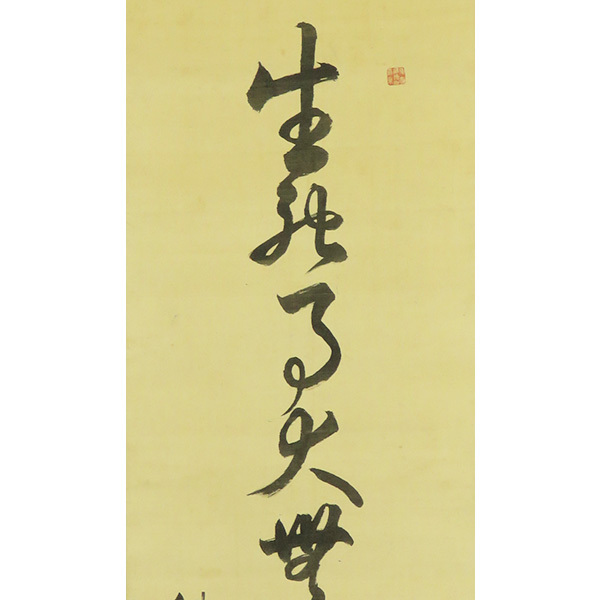 生死事大無